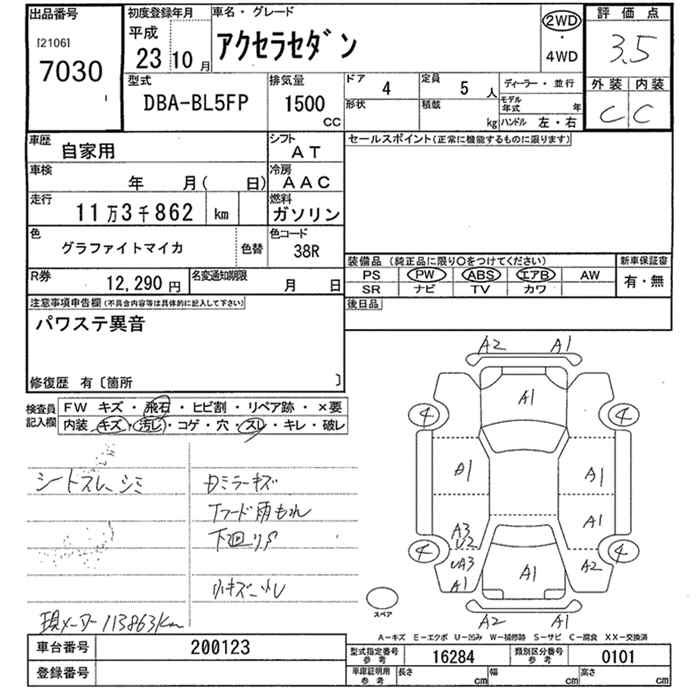 出品番号
[2106]
7030
初度登録年月
平成
23 10 月
車名・グレード
アクセラセダン
2WD
・
4WD
評価点
3.5
外装 内装
C C
型式
DBA-BL5FP
排気量
1500
CC
ドア
4
定員
5 人
形状
積載
kg
ディーラー・並行
モデル年式 年
ハンドル 左・右
車歴
自家用
シフト
AT
車検
年 月( 日)
冷房
AAC
走行
11万3千862 km
燃料
ガソリン
色
グラファイトマイカ
色替
色コード
38R
R券
12,290 円
名変通知期限
月 日
セールスポイント(正常に機能するものに限ります)
装備品 (純正品に限り○をつけてください)
PS PW ABS エアB AW
SR ナビ TV カワ
新車保証書
有・無
後日品
注意事項申告欄(不具合内容等は具体的に記入して下さい)
パワステ異音
修復歴 有〔箇所 〕
検査員記入欄
FW キズ・飛石・ヒビ割・リペア跡・×要
内装・キズ・汚レ・コゲ・穴・スレ・キレ・破レ
シートスレ、シミ
Dミラーキズ
Tフード雨もれ
下廻りサ
小キズ・凹
現メーター113863km
A2 A1
A1
4 4
A1 A1
A3 U2
A1
4 4
UA3 A1
A1
A2
A2 A1
スペア
A-キズ E-エクボ U-凹み W-補修跡 S-サビ C-腐食 XX-交換済
車台番号
200123
登録番号
型式指定番号 参考
16284
類別区分番号 参考
0101
車庫証明用 参考
長さ cm 幅 cm 高さ cm